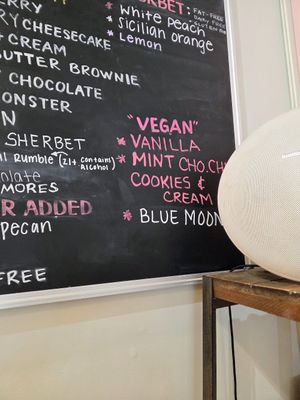 SORBET: FAT-FREE
DAIRY FREE
White Peach
Sicilian orange
Lemon
CHEESECAKE
CREAM
BUTTER BROWNIE
CHOCOLATE
MONSTER
SHERBET
Rumble (21+ contains Alcohol)
MORES
ADDED
Pecan
FREE
"VEGAN"
* VANILLA
* MINT CHO.CH
COOKIES &
CREAM
* BLUE MOON